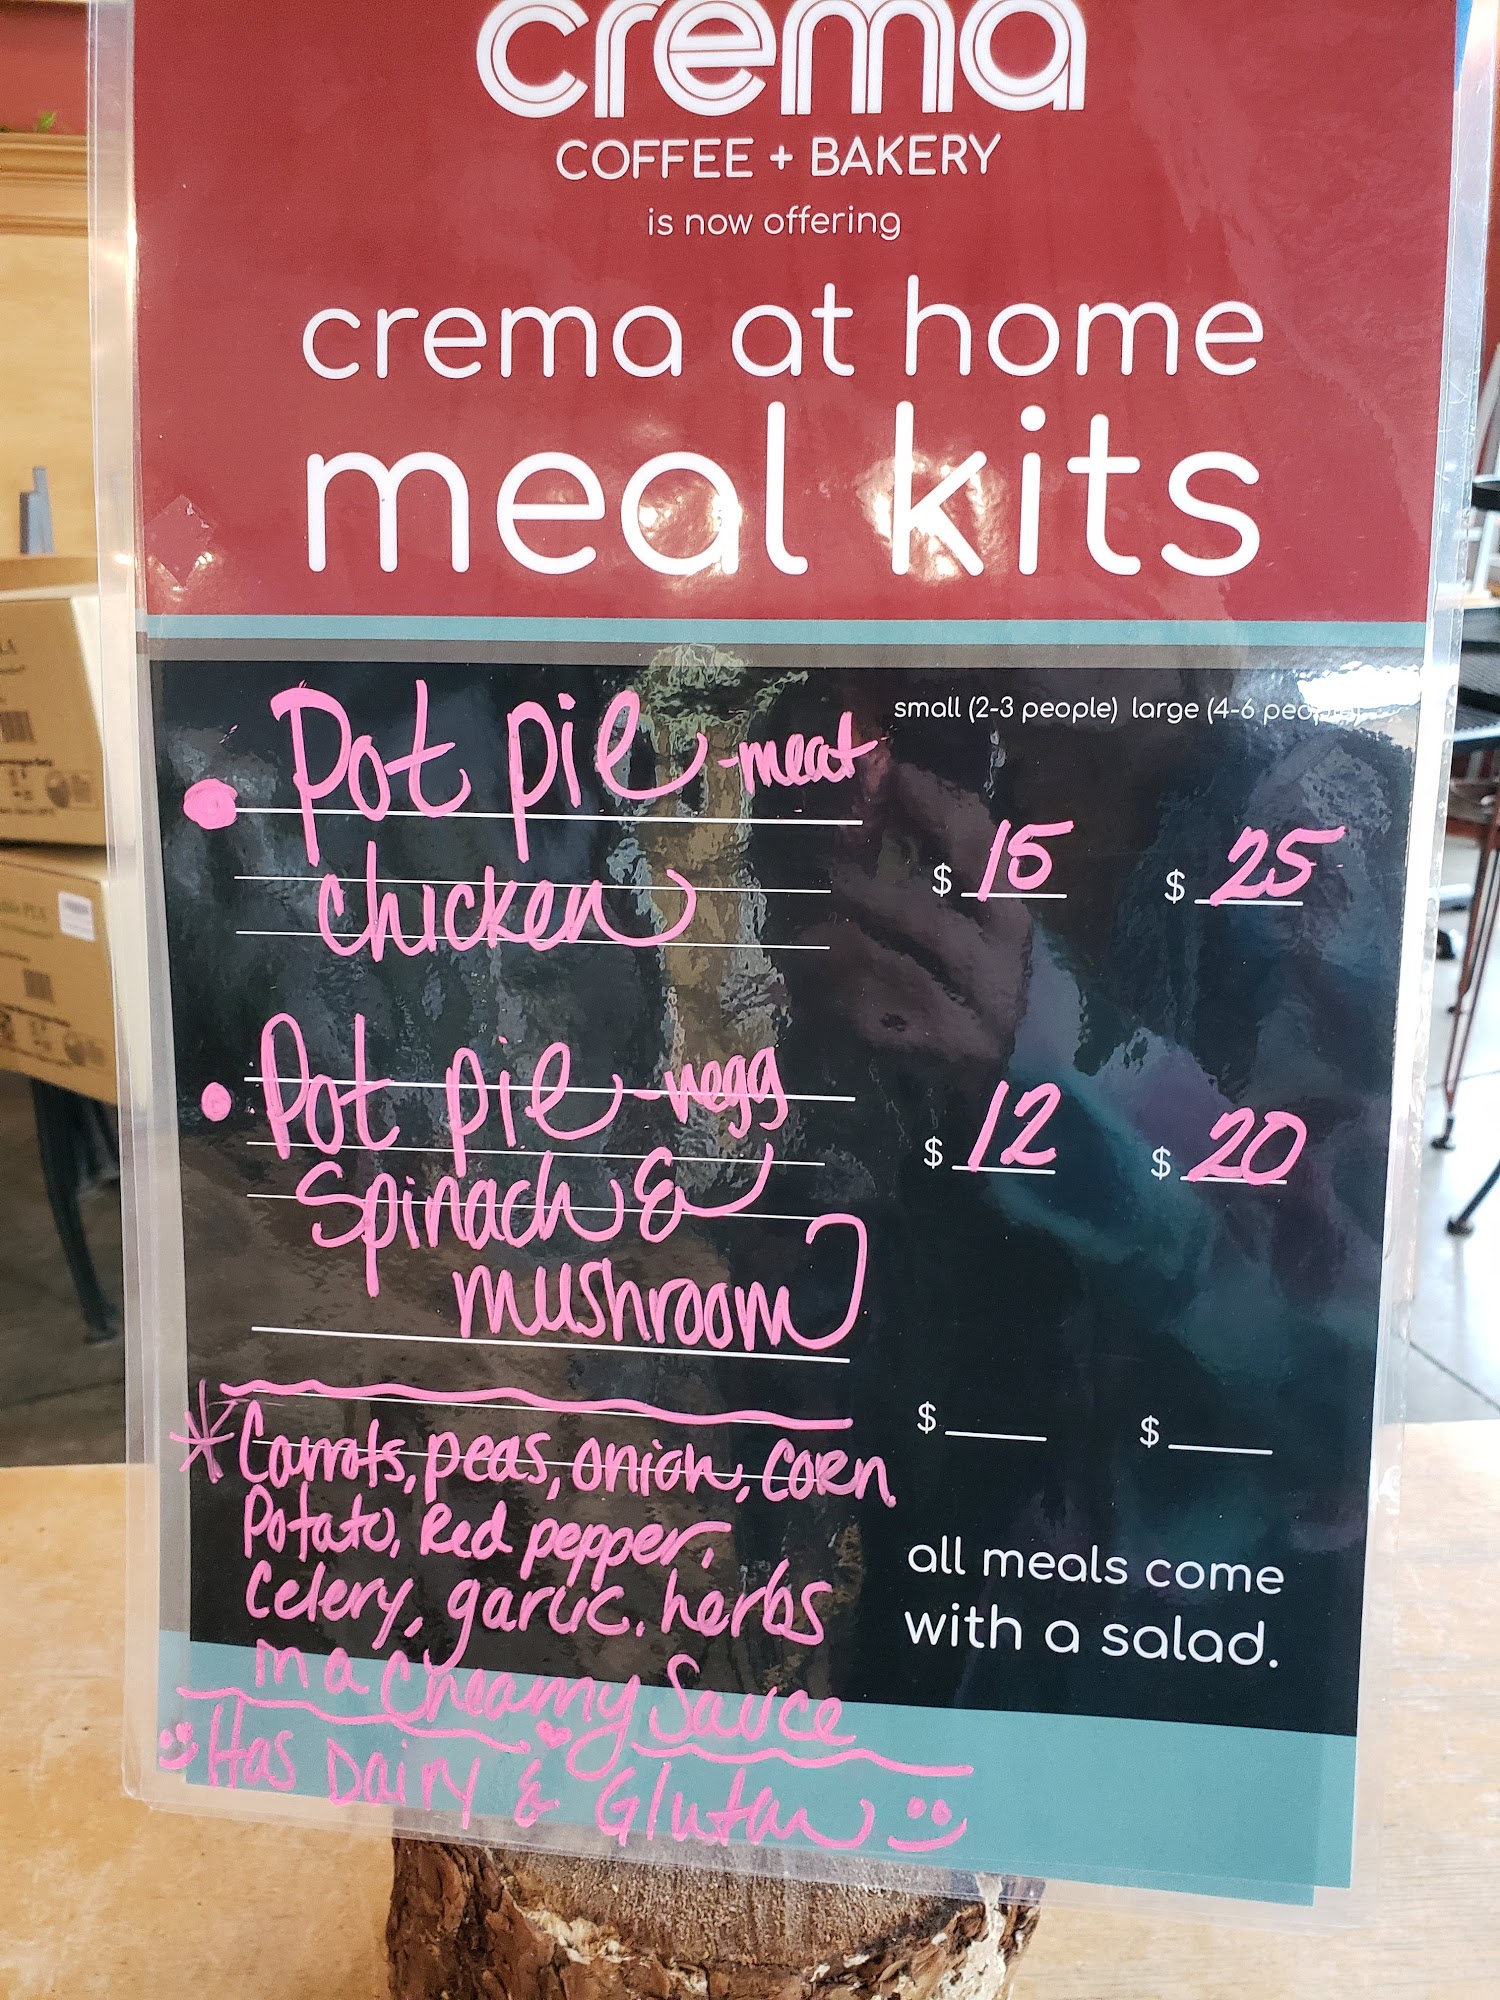 crema
COFFEE + BAKERY
is now offering
crema at home
meal kits
small (2-3 people) large (4-6 people)
Pot pie - meat
chicken
$ 15 $ 25
Pot pie - vegg
Spinach &
mushroom
$ 12 $ 20
$ $
* Carrots, peas, onion, corn,
Potato, Red pepper,
Celery, garlic, herbs
in a Creamy Sauce
Has Dairy & Gluten
all meals come
with a salad.